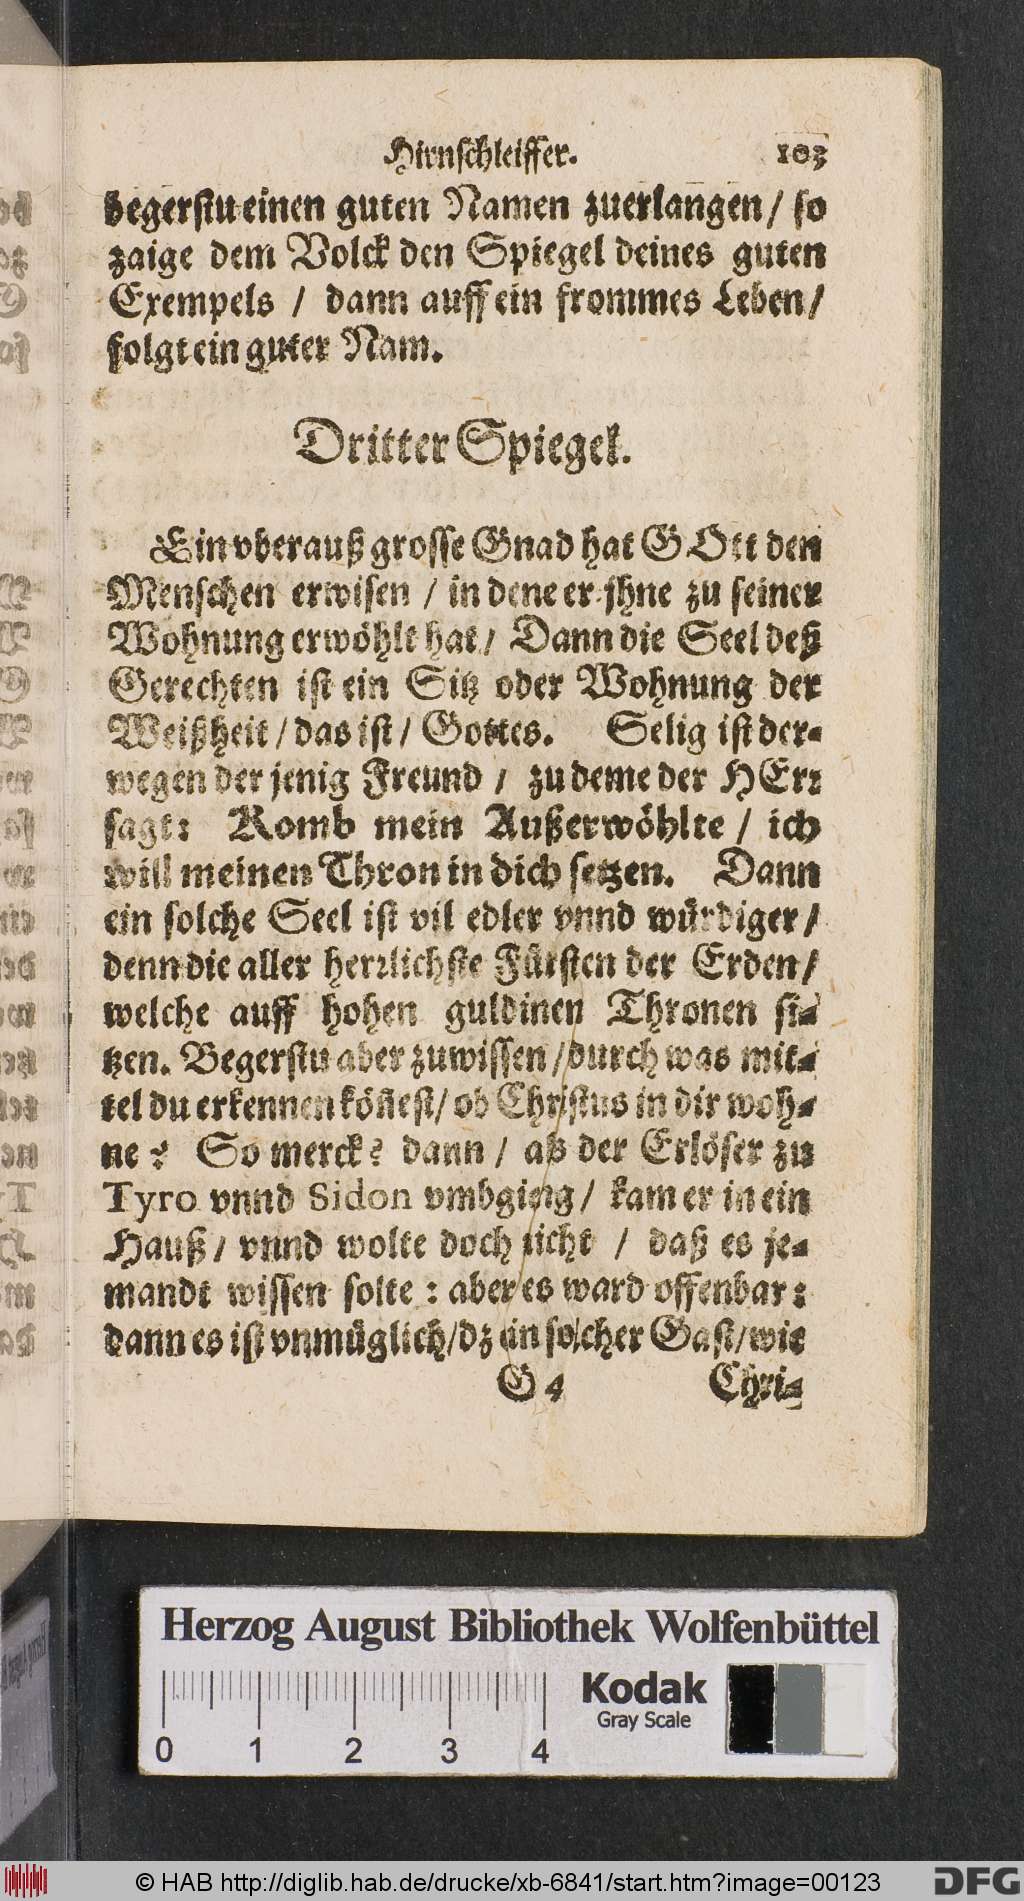 Hirnschleiffer. 103
begerstu einen guten Namen zuerlangen / so
zaige dem Volck den Spiegel deines guten
Exempels / dann auff ein frommes Leben /
folgt ein guter Nam.
Dritter Spiegel.
Ein vberauß grosse Gnad hat GOtt den
Menschen erwisen / in dene er jhne zu seiner
Wohnung erwöhlt hat / Dann die Seel deß
Gerechten ist ein Sitz oder Wohnung der
Weißheit / das ist / Gottes. Selig ist der-
wegen der jenig Freund / zu deme der HErr
sagt: Komb mein Außerwöhlte / ich
will meinen Thron in dich setzen. Dann
ein solche Seel ist vil edler vnnd würdiger /
denn die aller herrlichste Fürsten der Erden /
welche auff hohen guldinen Thronen si-
tzen. Begerstu aber zuwissen / durch was mit-
tel du erkennen köñest / ob Christus in dir woh-
ne? So merck? dann / als der Erlöser zu
Tyro vnnd Sidon vmbgieng / kam er in ein
Hauß / vnnd wolte doch nicht / daß es je-
mandt wissen solte: aber es ward offenbar:
dann es ist vnmüglich / dz ein solcher Gast / wie
G 4 Chri-
Herzog August Bibliothek Wolfenbüttel
Kodak
Gray Scale
0 1 2 3 4
© HAB http://diglib.hab.de/drucke/xb-6841/start.htm?image=00123
DFG